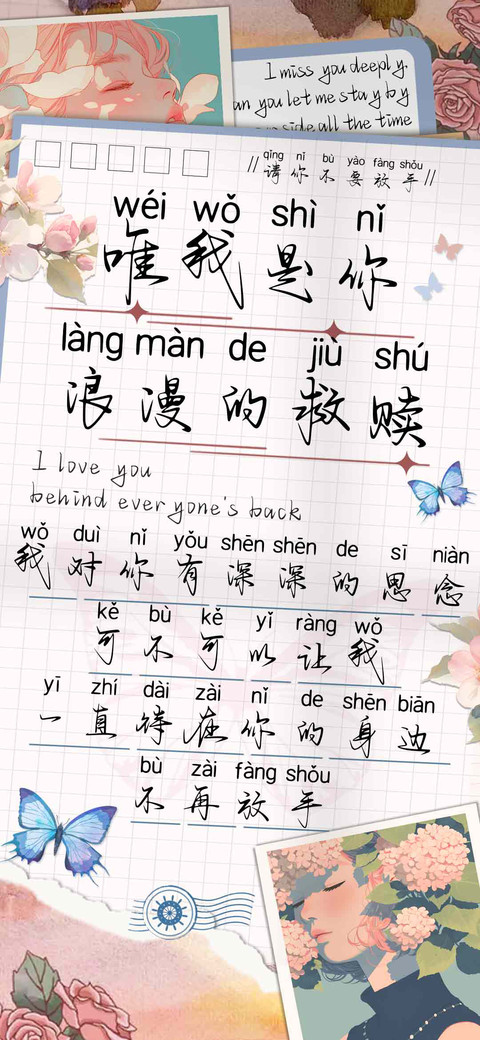 I miss you deeply.
an you let me stay by
side all the time
qǐng nǐ bù yào fàng shǒu
//请你不要放手//
wéi wǒ shì nǐ
唯我是你
làng màn de jiù shú
浪漫的救赎
I love you
behind everyone's back
wǒ duì nǐ yǒu shēn shēn de sī niàn
我对你有深深的思念
kě bù kě yǐ ràng wǒ
可不可以让我
yī zhí dài zài nǐ de shēn biān
一直待在你的身边
bù zài fàng shǒu
不再放手